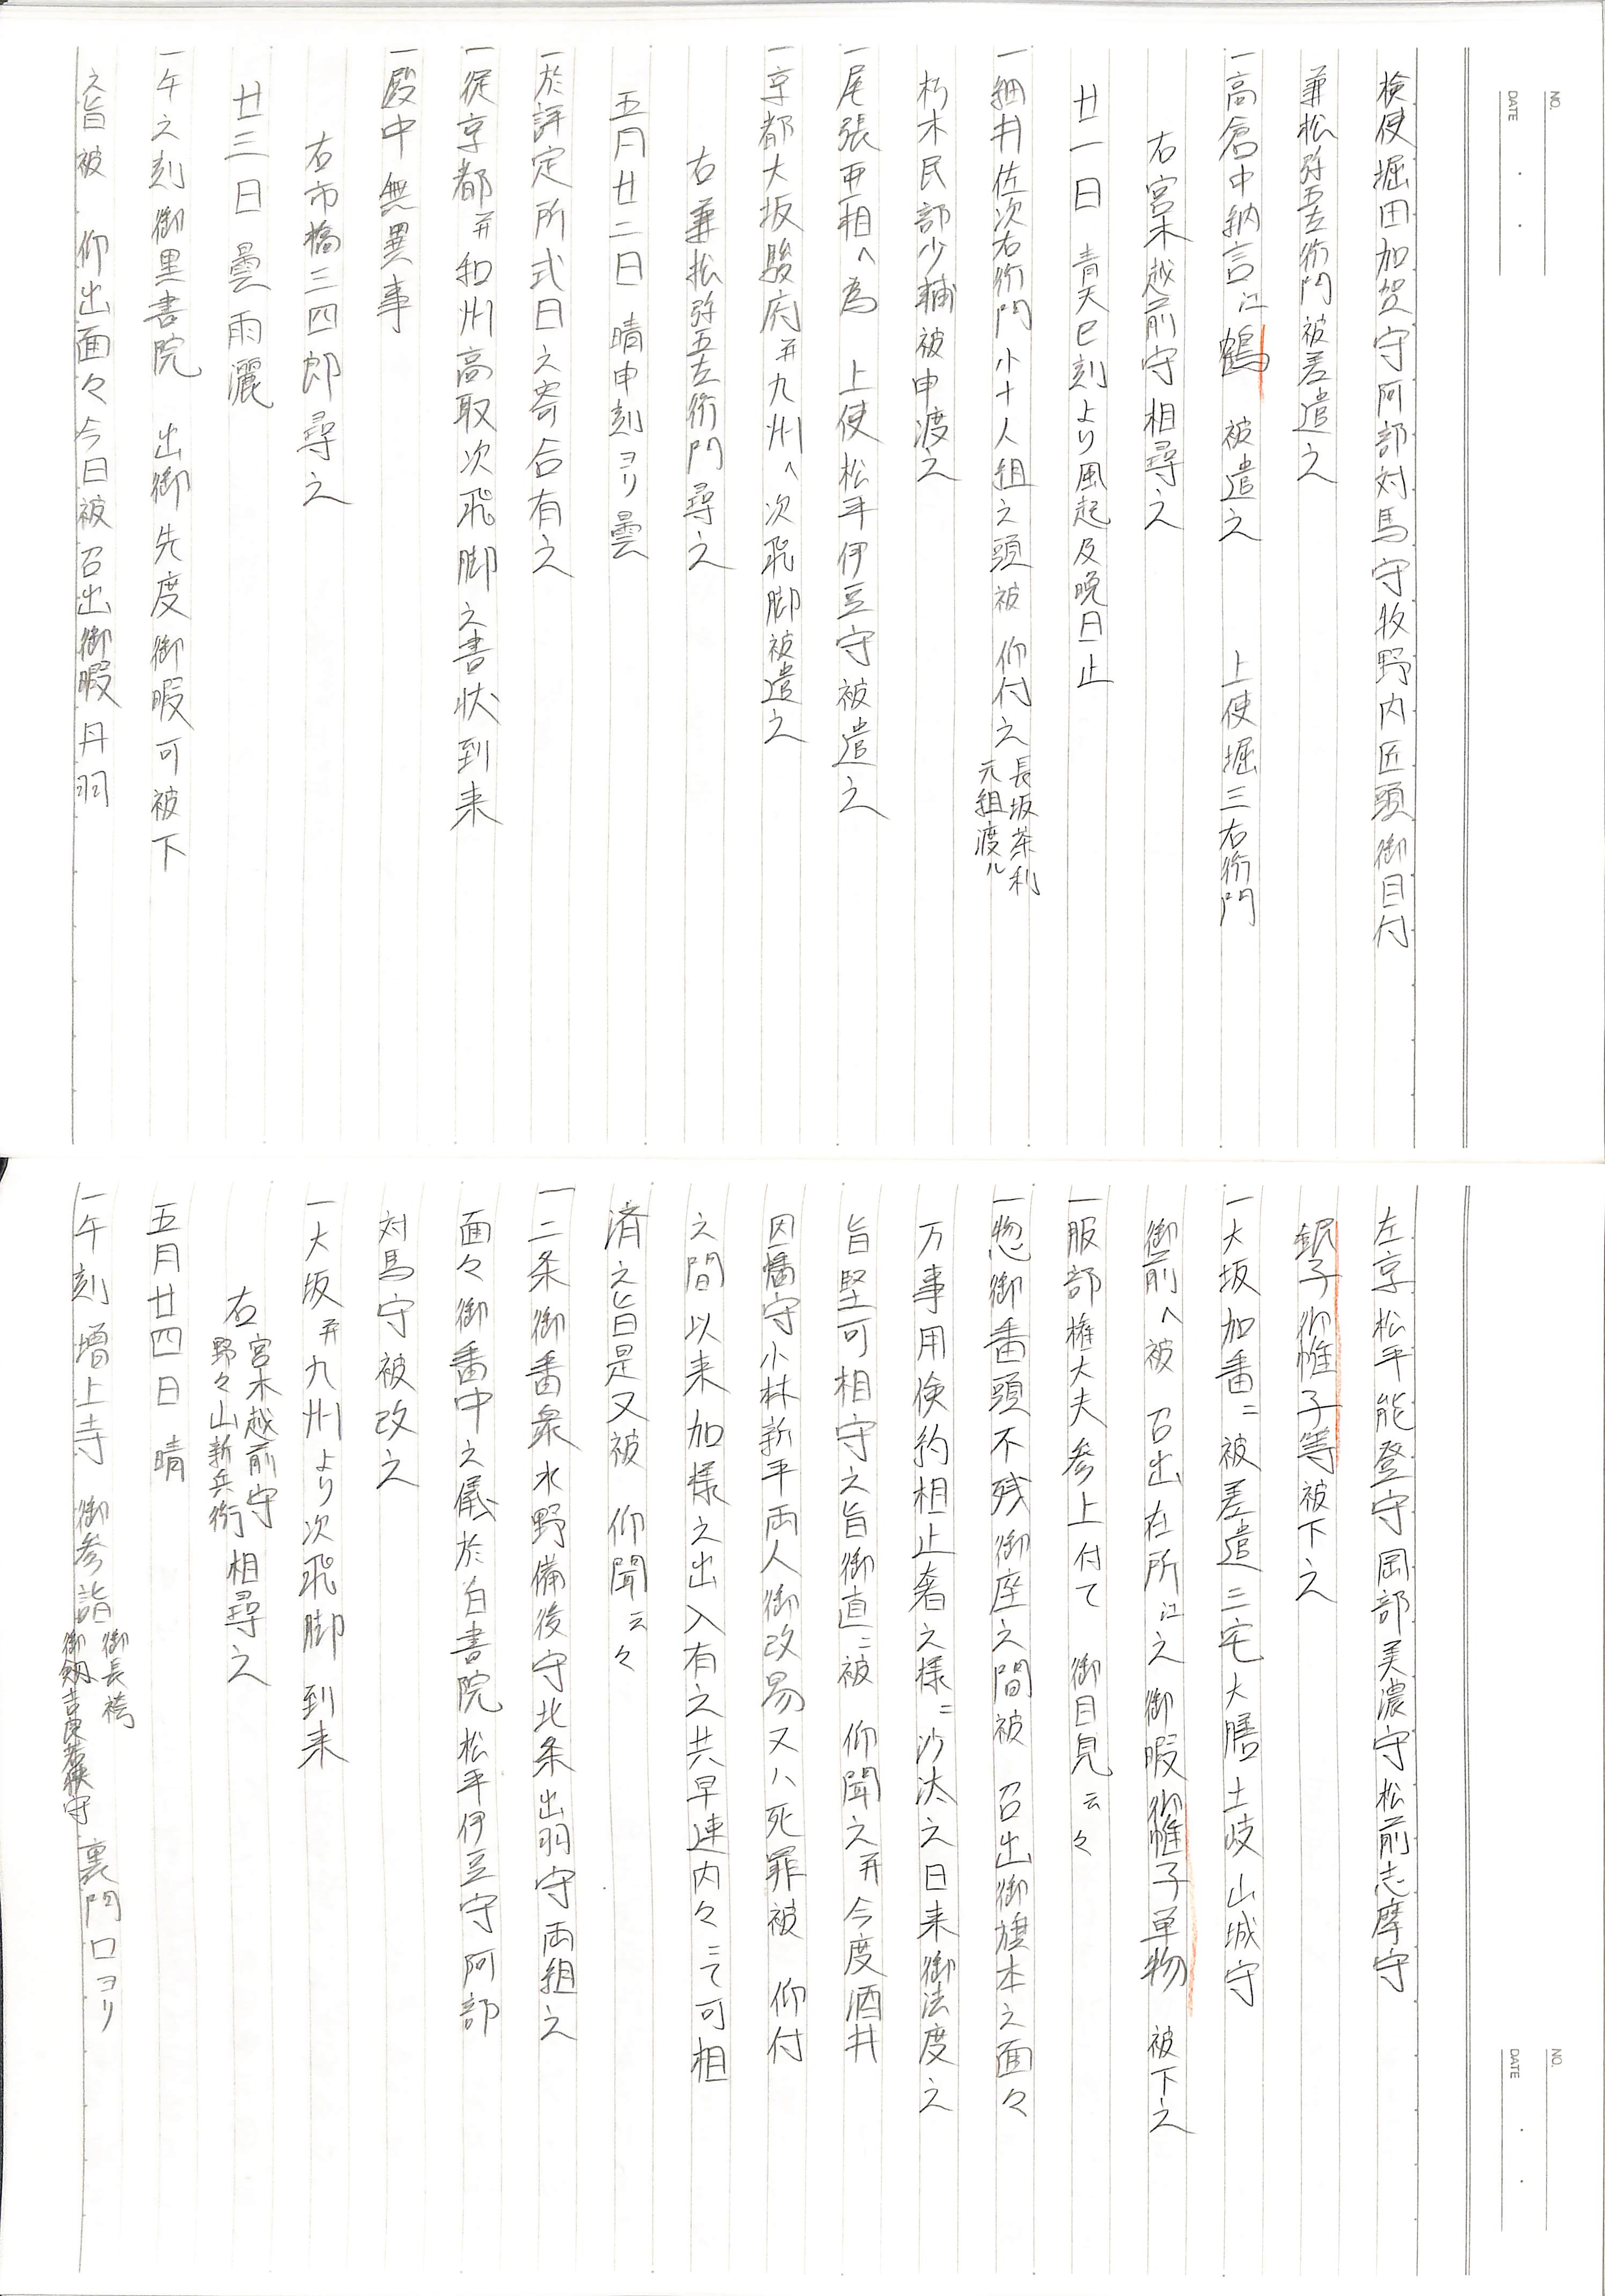 NO.
DATE
検使堀田加賀守阿部対馬守牧野内匠頭御目付
兼松弥五左衛門被差遣之
一高倉中納言江鶴　被遣之　　上使堀三右衛門
右宮木越前守相尋之
廿一日　青天巳刻より風起及晩日止
一細井佐次右衛門小十人組之頭被　仰付之長坂茶利
元組渡ル
朽木民部少輔被申渡之
一尾張亜相へ為　上使松平伊豆守被遣之
一京都大坂駿府并九州へ次飛脚被遣之
右兼松弥五左衛門尋之
五月廿二日　晴申刻ヨリ曇
一於評定所式日之寄合有之
一従京都并和州高取次飛脚之書状到来
一殿中無異事
右市橋三四郎尋之
廿三日　曇雨灑
一午之刻御黒書院　出御先度御暇可被下
之旨被　仰出面々今日被召出御暇丹羽
NO.
DATE
左京松平能登守岡部美濃守松前志摩守
銀子御帷子等被下之
一大坂加番ニ被差遣三宅大膳土岐山城守
御前へ被　召出在所江之御暇御帷子単物　被下之
一服部権大夫参上付て　御目見云々
一惣御番頭不残御座之間被　召出御旗本之面々
万事用倹約相止奢之様ニ沙汰之日来御法度之
旨堅可相守之旨御直ニ被　仰聞之并今度酒井
因幡守小林新平両人御改易又ハ死罪被　仰付
之間以来加様之出入有之共早速内々ニて可相
済之旨是又被　仰聞云々
一二条御番衆水野備後守北条出羽守両組之
面々御番中之儀於白書院松平伊豆守阿部
対馬守被改之
一大坂并九州より次飛脚到来
右宮木越前守
野々山新兵衛相尋之
五月廿四日　晴
一午刻　増上寺　御参詣御長袴
御剱吉良若狭守　裏門口ヨリ